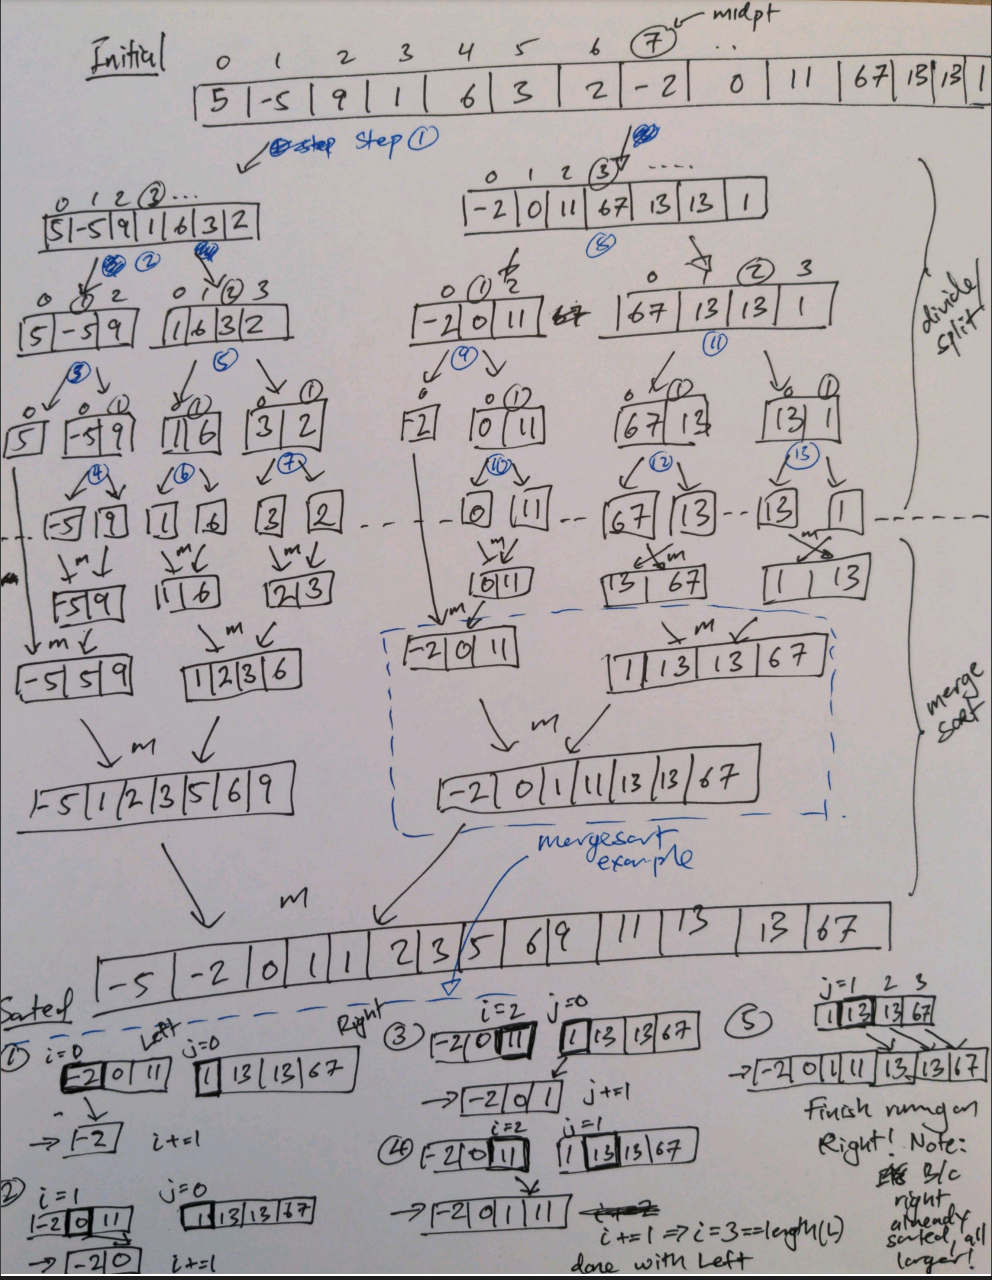 midpt
Initial 0 1 2 3 4 5 6 7 ..
5 -5 9 1 6 3 2 -2 0 11 67 13 13 1
step Step 1
0 1 2 3 ... 0 1 2 3 .....
5 -5 9 1 6 3 2 -2 0 11 67 13 13 1
2 8
0 1 2 0 1 2 3 0 1 2 0 2 3
5 -5 9 1 6 3 2 -2 0 11 67 67 13 13 1
divide/
split
3 5 9 11
0 0 1 0 1 0 1 0 0 1 0 1 0 1
5 -5 9 1 6 3 2 -2 0 11 67 13 13 1
4 6 7 10 12 13
-5 9 1 6 3 2 0 11 67 13 13 1
m m m m m m
-5 9 1 6 2 3 0 11 13 67 1 13
m m m m
-5 5 9 1 2 3 6 -2 0 11 1 13 13 67
merge
sort
m m
-5 1 2 3 5 6 9 -2 0 1 11 13 13 67
mergesort
example
m
-5 -2 0 1 1 2 3 5 6 9 11 13 13 67
Sorted
Left Right
1 i=0 j=0
-2 0 11 1 13 13 67
-2 i+=1
2 i=1 j=0
-2 0 11 1 13 13 67
→ -2 0 i+=1
3 i=2 j=0
-2 0 11 1 13 13 67
→ -2 0 1 j+=1
4 i=2 j=1
-2 0 11 1 13 13 67
→ -2 0 1 11
i+=1 => i=3==length(L)
done with Left
5 j=1 2 3
1 13 13 67
→ -2 0 1 11 13 13 67
Finish running on
Right! Note:
B/c
right
already
sorted, all
larger!